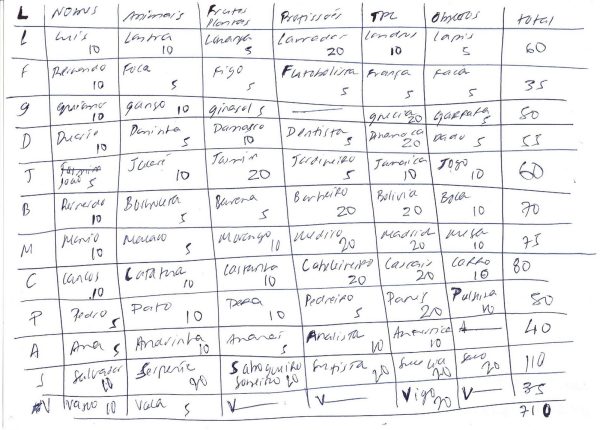 L Nomes Animais Frutos Plantas Profissões TPL Objectos total
L Luis 10 Lontra 10 Laranja 5 Lavrador 20 Londres 10 Lapis 5 60
F Fernando 10 Foca 5 Figo 5 Futebolista 5 França 5 Faca 5 35
g 10 ganso 10 girasol 5 — grecia 20 garrafa 5 50
D Duarte 10 Doninha 5 Damasco 10 Dentista 5 Dinamarca 20 Dado 5 55
J João 5 Jacaré 10 Jasmim 20 Jardineiro 5 Jamaica 10 Jogo 10 60
B Bernardo 10 Borboleta 5 Banana 5 Barbeiro 20 Bolivia 20 Bola 10 70
M Mário 10 Macaco 5 Morango 10 Medico 20 Madrid 20 Mesa 10 75
C Carlos 10 Catatua 10 Castanha 10 Cabeleireiro 20 Cascais 20 Carro 10 80
P Pedro 5 Pato 10 Pera 10 Pedreiro 5 Paris 20 Pulseira 10 50
A Ana 5 Andorinha 10 Ananas 5 Analista 10 America 10 A — 40
S Salvador 10 Serpente 20 Sabogueiro Sobreiro 20 20 Suecia 20 Saco 20 110
V Vasco 10 Vaca 5 V — V — Vigo 20 V — 35
710